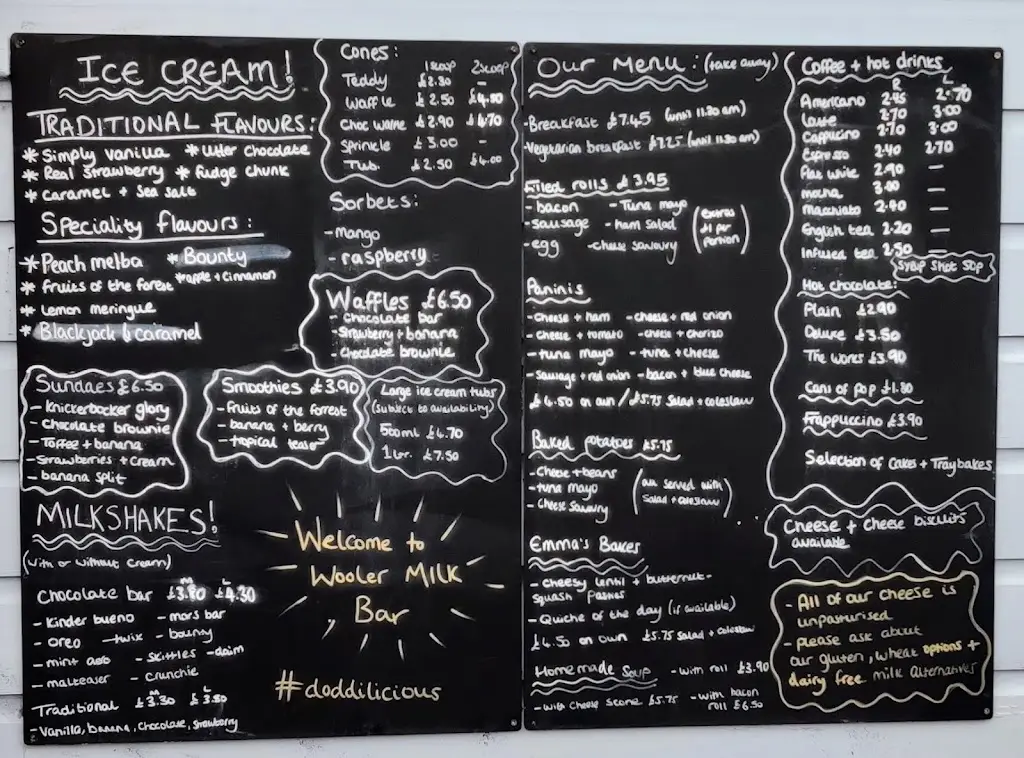 ICE CREAM!
TRADITIONAL FLAVOURS:
* Simply vanilla * Utter chocolate
* Real Strawberry * Fudge chunk
* Caramel + Sea salt
Speciality flavours:
* Peach melba * Bounty
* fruits of the forest * apple + cinnamon
* Lemon meringue
* Blackjack & caramel
Cones:
1scoop 2scoop
Teddy £2.30 -
Waffle £2.50 £4.80
Choc Waffle £2.90 £4.70
Sprinkle £3.00 -
Tub. £2.50 £4.00
Sorbets:
- mango
- raspberry
Waffles £6.50
- Chocolate bar
- Strawberry + banana
- Chocolate brownie
Sundaes £6.50
- knickerbocker glory
- chocolate brownie
- Toffee + banana
- Strawberries + cream
- banana split
Smoothies £3.90
- fruits of the forest
- banana + berry
- topical tease
Large ice cream tubs
(subject to availability)
500ml £4.70
1 Ltr. £7.50
MILKSHAKES!
(with or without cream)
M L
Chocolate bar £3.80 £4.30
- Kinder bueno - mars bar
- oreo - twix - bounty
- mint aero - skittles - daim
- malteaser - crunchie
M L
Traditional £3.30 £3.50
- Vanilla, banana, chocolate, strawberry
Welcome to
Wooler MILK
Bar
#doddilicious
Our Menu: (take away)
- Breakfast £7.45 (until 11.30 am)
- Vegetarian breakfast £7.25 (until 11.30 am)
Filled rolls £3.95
- bacon - Tuna mayo
- sausage - ham salad
- egg - cheese savoury
(Extras
£1 per
portion)
Paninis
- cheese + ham - cheese + red onion
- cheese + tomato - cheese + chorizo
- tuna mayo - tuna + cheese
- sausage + red onion - bacon + blue cheese
£4.50 on own / £5.75 salad + coleslaw
Baked potatoes £5.75
- cheese + beans
- tuna mayo
- cheese savoury
(all served with
salad + coleslaw)
Emma's Bakes
- cheesy lentil + butternut-
squash pasties
- Quiche of the day (if available)
£4.50 on own £5.75 salad + coleslaw
Homemade Soup - with roll £3.90
- with cheese scone £5.75 - with bacon
roll £6.50
Coffee + hot drinks
R L
Americano 2.45 2.70
Latte 2.70 3.00
Cappucino 2.70 3.00
Espresso 2.40 2.70
Flat white 2.90 -
mocha 3.00 -
Macchiato 2.40 -
English tea 2.20 -
Infused tea 2.50 -
Syrup Shot 50p
Hot chocolate:
Plain £2.90
Deluxe £3.50
The works £3.90
Cans of pop £1.80
Frappuccino £3.90
Selection of Cakes + Traybakes
Cheese + cheese biscuits
available
- All of our cheese is
unpasturised
- please ask about
our gluten, wheat options +
dairy free milk alternatives